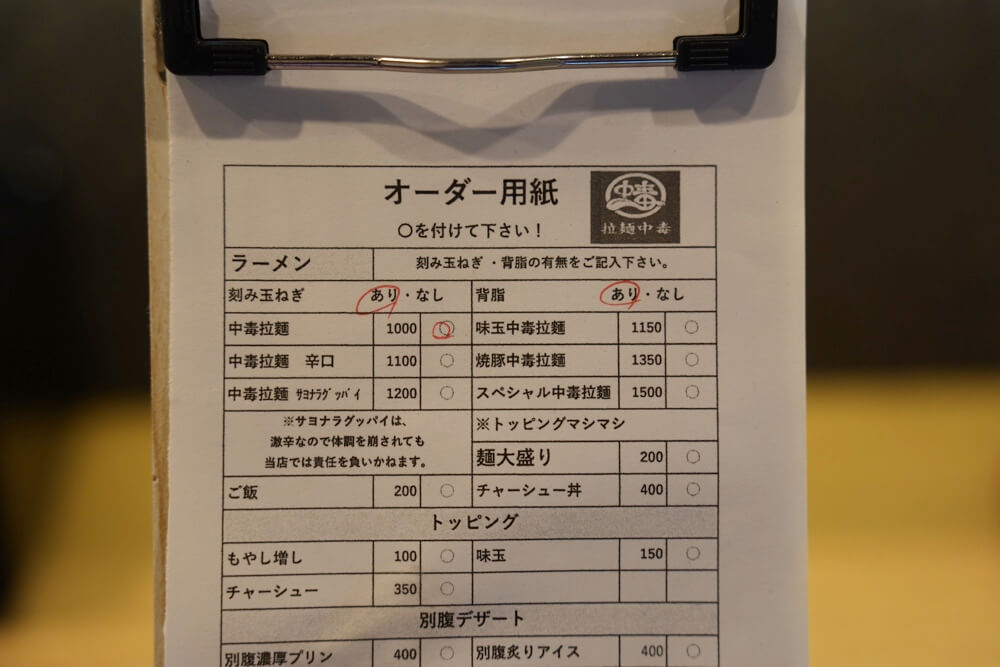 オーダー用紙
〇を付けて下さい！
中毒
拉麺中毒
ラーメン 刻み玉ねぎ ・背脂の有無をご記入下さい。
刻み玉ねぎ あり・なし 背脂 あり・なし
中毒拉麺 1000 〇 味玉中毒拉麺 1150 〇
中毒拉麺 辛口 1100 〇 焼豚中毒拉麺 1350 〇
中毒拉麺 ｻﾖﾅﾗｸﾞｯﾊﾞｲ 1200 〇 スペシャル中毒拉麺 1500 〇
※サヨナラグッバイは、
激辛なので体調を崩されても
当店では責任を負いかねます。
※トッピングマシマシ
麺大盛り 200 〇
ご飯 200 〇 チャーシュー丼 400 〇
トッピング
もやし増し 100 〇 味玉 150 〇
チャーシュー 350 〇
別腹デザート
別腹濃厚プリン 400 〇 別腹炙りアイス 400 〇